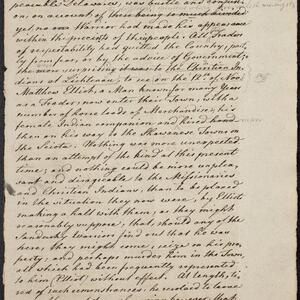 peaceable Delawares, was quiette and confi-
on, on account of there being as much
no Warrior had made his appearance
within the precincts of these people. All Traders
of respectability had quitted the Country, part-
ly from fear, or by the advice of Government,
the more surprizing it was to the Christian In-
dians at Lichtenau, to see on the of No
Matthew Elliot, a Man known for many years
as a Trader, now enter their Town, with a
number of horse loads of Merchandize; his
female Indian companion and hired hand
then on his way to the Shawanese Towns on
the Sciota. Nothing was more unexpected
than an attempt of the kind at this present
time, and nothing could be more unplea-
sant and disagreeable to the Missionaries
and Christian Indians, than to be placed
in the situation they now were, by Elliots
making a halt with them; as they might
reasonably suppose, that should any of the
Sandusky warriors find out that he was
here, they might come, seize on his pro-
perty; and perhaps murder him in the Town,
all which had been frequently represented
to him (Elliot) without effect. At length, ti-
red of such remonstrances, he resolved to leave